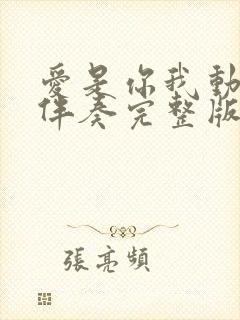 愛是你我動
伴奏完整版
張亮頻